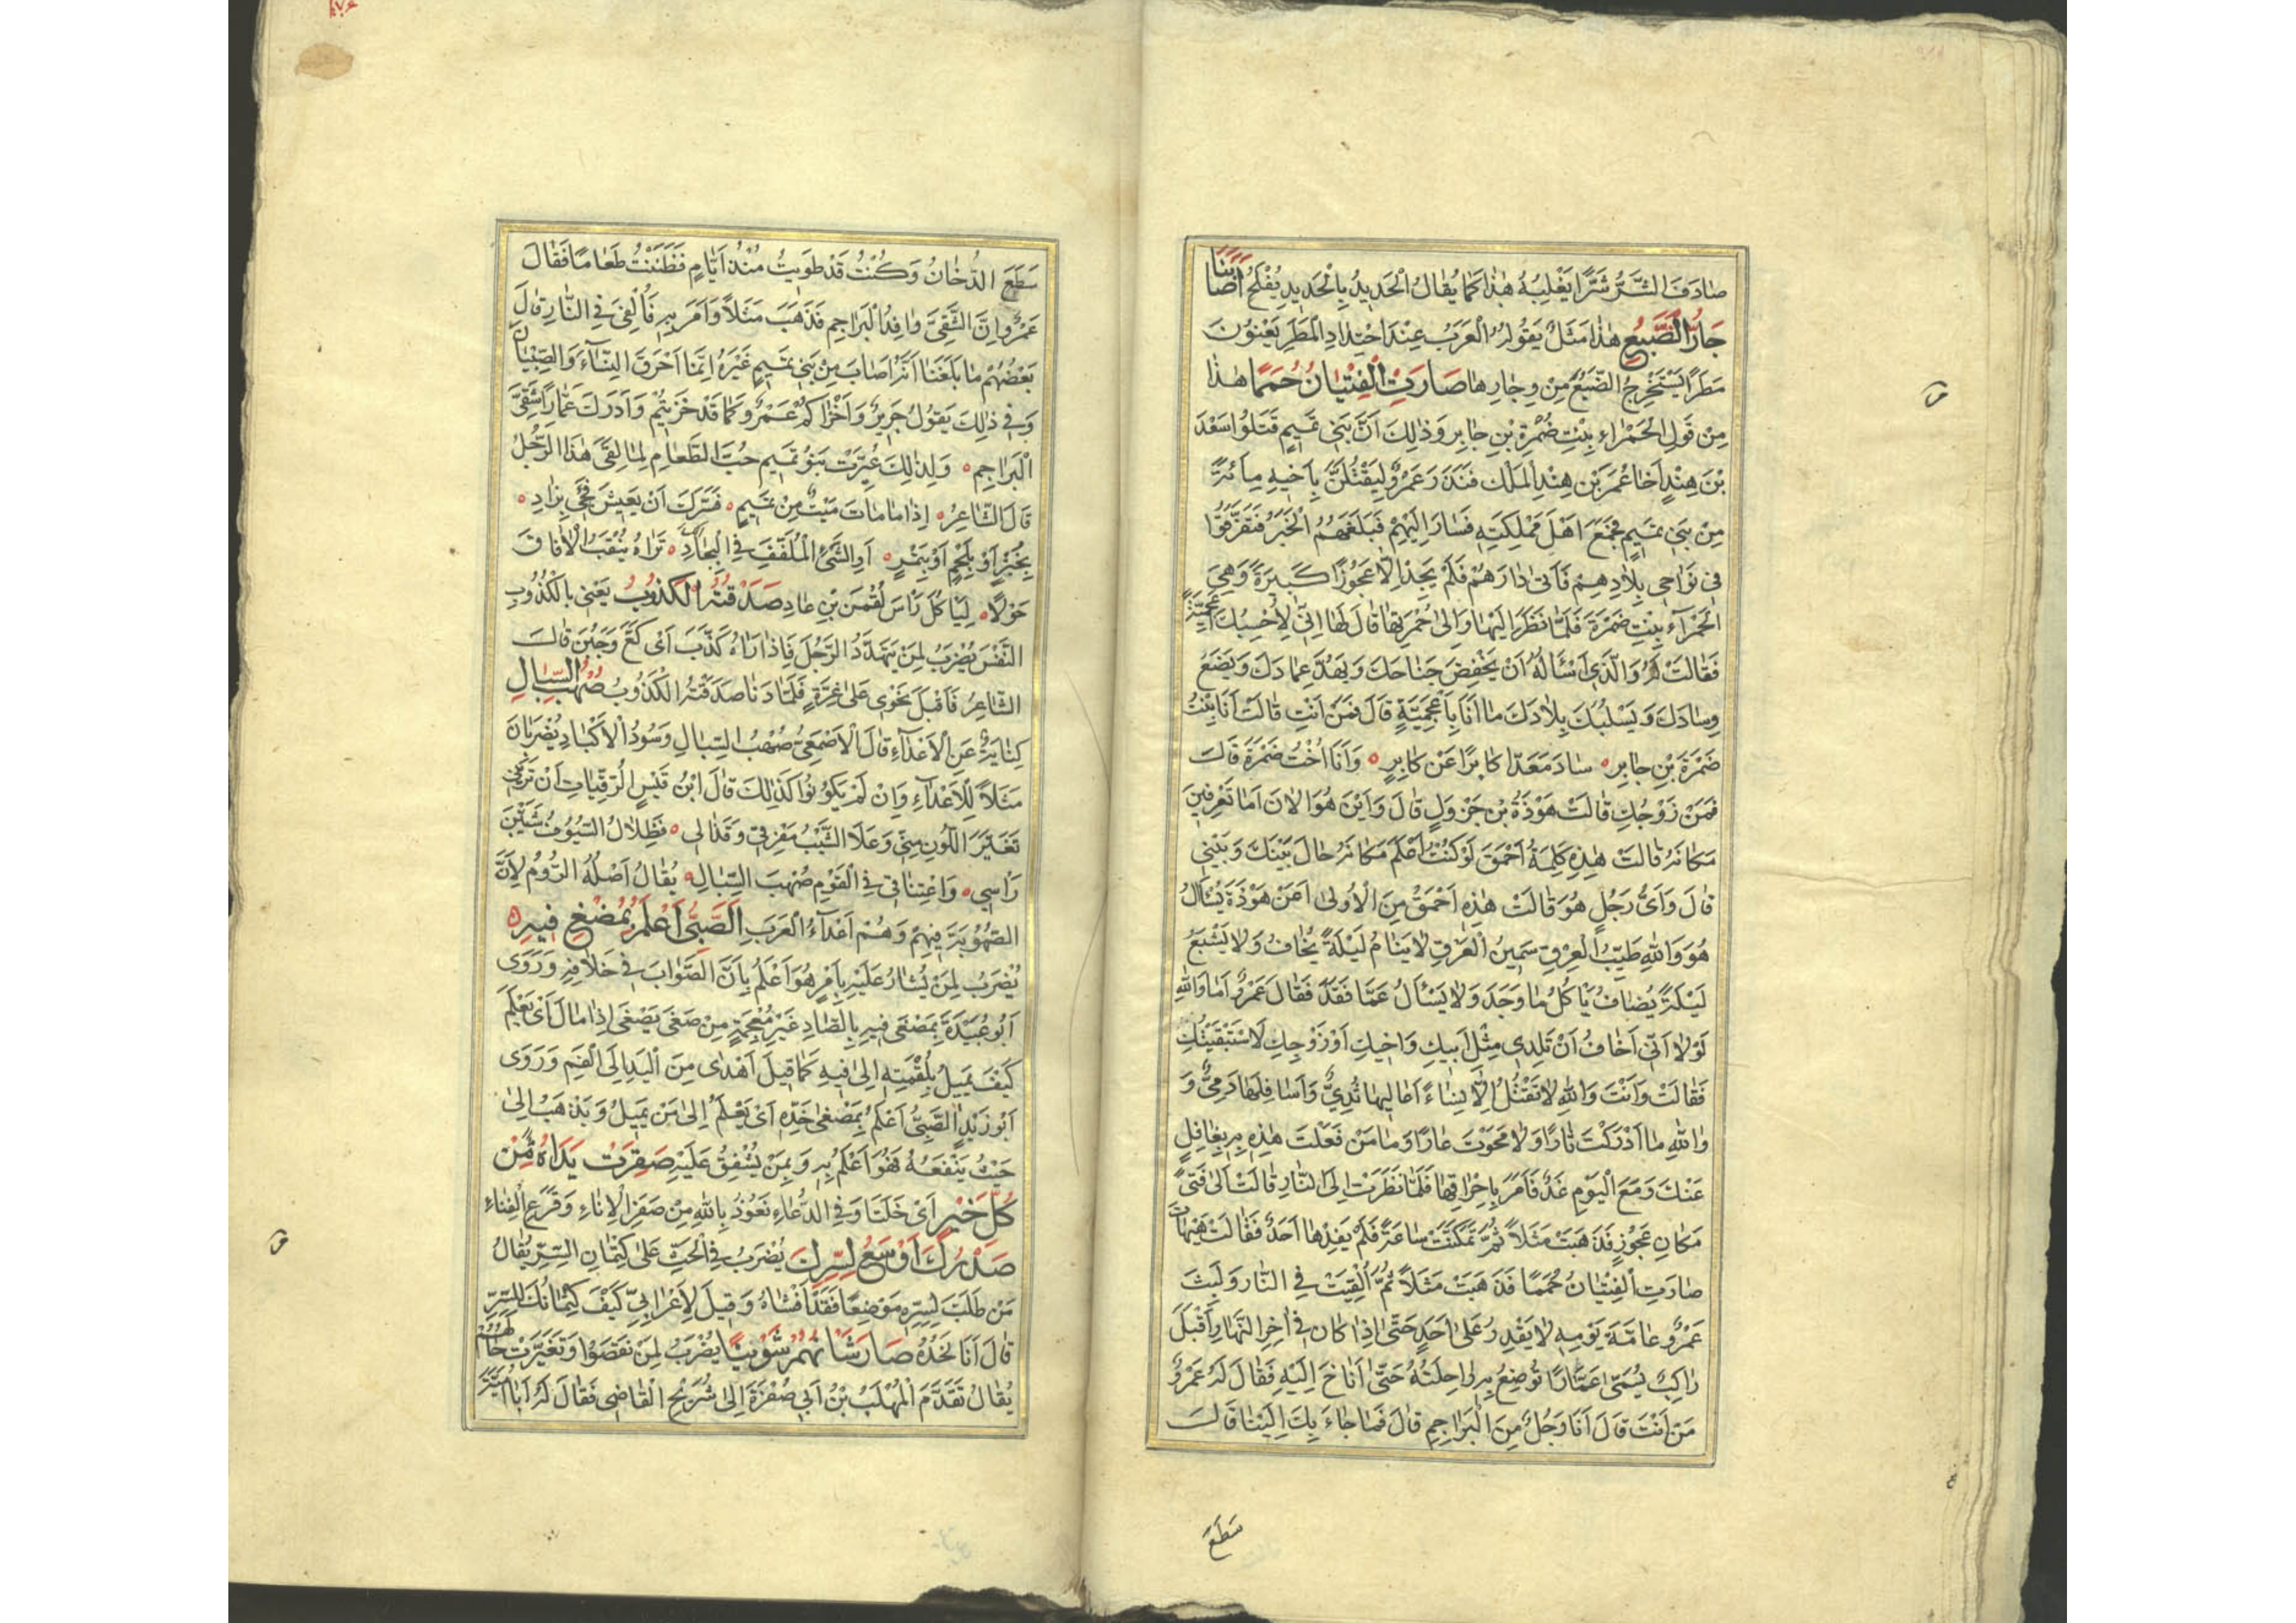 صادَفَ الشَّرُّ شَرًّا يَغْلِبُهُ هٰذا كَما يُقالُ الْحَديدُ بِالْحَديدِ يُفْلَحُ أَصابَنا
جارُّ الضَّبُعِ هٰذا مَثَلٌ يَقُولُهُ الْعَرَبُ عِنْدَ اشْتِدادِ الْمَطَرِ يَعْنُونَ
مَطَرًا يَسْتَخْرِجُ الضَّبُعَ مِنْ وِجارِها صارَتِ الْفِتْيانُ حُمَمًا هٰذا
مِنْ قَوْلِ الْحَمْراءِ بِنْتِ ضَمْرَةَ بْنِ جابِرٍ وَذٰلِكَ أَنَّ بَنِي تَميمٍ قَتَلُوا سَعْدَ
بْنَ هِنْدٍ أَخا عُمَرَ بْنِ هِنْدِ الْمَلَكِ فَنَذَرَ عَمْرٌو لِيَقْتُلَنَّ بِأَخيهِ مِائَةً
مِنْ بَني تَميمٍ فَجَمَعَ اَهْلَ مَمْلِكَتِهِ فَسارَ اِلَيْهِمْ فَبَلَغَهُمُ الْخَبَرُ فَتَفَرَّقُوا
في نَواحي بِلادِهِمْ فَأَتى دارَهُمْ فَلَمْ يَجِدْ اِلّا عَجُوزًا كَبيرَةً وَهِيَ
الْحَمْراءُ بِنْتُ ضَمْرَةَ فَلَمّا نَظَرَ اِلَيْها وَاِلى حُمْرَتِها قالَ لَها اِنّي لَأَحْسِبُكِ اَعْجَمِيَّةً
فَقالَتْ لا وَالَّذي اَسْأَلُهُ اَنْ يَخْفِضَ جَناحَكَ وَيَهُدَّ عِمادَكَ وَيَضَعَ
وِسادَكَ وَيَسْلُبَكَ بِلادَكَ ما اَنَا بِاَعْجَمِيَّةٍ قالَ فَمَنْ اَنْتِ قالَتْ اَنَا بِنْتُ
ضَمْرَةَ بْنِ جابِرٍ سادَ مَعَدًّا كابِرًا عَنْ كابِرٍ وَاَنَا اُخْتُ ضَمْرَةَ قالَ
فَمَنْ زَوْجُكِ قالَتْ هَوْذَةُ بْنُ جَرْوَلٍ قالَ وَاَيْنَ هُوَ الْاٰنَ اَما تَعْرِفينَ
مَكانَهُ قالَتْ هٰذِهِ كَلِمَةُ اَحْمَقَ لَوْ كُنْتُ اَعْلَمُ مَكانَهُ حالَ بَيْنَكَ وَبَيْني
قالَ وَاَيُّ رَجُلٍ هُوَ قالَتْ هٰذِهِ اَحْمَقُ مِنَ الْاُولى اَعَنْ هَوْذَةَ يُسْأَلُ
هُوَ وَاللهِ طَيِّبُ الْعِرْقِ سَمينُ الْعَرَقِ لا يَنامُ لَيْلَةً يُخافُ وَلا يَشْبَعُ
لَيْلَةً يُضافُ يَأْكُلُ ما وَجَدَ وَلا يَسْأَلُ عَمّا فَقَدَ فَقالَ عَمْرٌو اَما وَاللهِ
لَوْلا اَنّي اَخافُ اَنْ تَلِدي مِثْلَ اَبيكِ وَاَخيكِ اَوْ زَوْجِكِ لَاسْتَبْقَيْتُكِ
فَقالَتْ وَاَنْتَ وَاللهِ لا تَقْتُلُ اِلّا نِساءً اَعاليها ثُدِيٌّ وَاَسافِلُها دُمِيٌّ وَ
وَاللهِ ما اَدْرَكْتَ ثارًا وَلا مَحَوْتَ عارًا وَما مَنْ فَعَلْتَ هٰذِهِ بِهِ بِغافِلٍ
عَنْكَ وَمَعَ الْيَوْمِ غَدٌ فَاَمَرَ بِاِحْراقِها فَلَمّا نَظَرَتْ اِلَى النّارِ قالَتْ اَلا فَتىً
مَكانَ عَجُوزٍ فَذَهَبَتْ مَثَلاً ثُمَّ تَمَكَّثَتْ ساعَةً فَلَمْ يَفْدِها اَحَدٌ فَقالَتْ هَيْهاتَ
صارَتِ الْفِتْيانُ حُمَمًا فَذَهَبَتْ مَثَلاً ثُمَّ اُلْقِيَتْ فِي النّارِ وَلَبِثَ
عَمْرٌو عامَّةَ يَوْمِهِ لا يَقْدِرُ عَلى اَحَدٍ حَتّى اِذا كانَ في اٰخِرِ النَّهارِ اَقْبَلَ
راكِبٌ يُسَمّى عَمّارًا تُوضِعُ بِهِ راحِلَتُهُ حَتّى اَناخَ اِلَيْهِ فَقالَ لَهُ عَمْرٌو
مَنْ اَنْتَ قالَ اَنَا رَجُلٌ مِنَ الْبَراجِمِ قالَ فَما جاءَ بِكَ اِلَيْنا قالَ
سَطَعَ
سَطَعَ الدُّخانُ وَكُنْتُ قَدْ طَوَيْتُ مُنْذُ اَيّامٍ فَظَنَنْتُ طَعامًا فَقالَ
عَمْرٌو اِنَّ الشَّقِيَّ وافِدُ الْبَراجِمِ فَذَهَبَ مَثَلاً وَاَمَرَ بِهِ فَاُلْقِيَ فِي النّارِ قالَ
بَعْضُهُمْ ما بَلَغَنا اَنَّهُ اَصابَ مِنْ بَني تَميمٍ غَيْرَهُ اِنَّما اَحْرَقَ النِّساءَ وَالصِّبْيانَ
وَفي ذٰلِكَ يَقُولُ جَريرٌ وَاَخْزاكُمْ عَمْرٌو كَما قَدْ خَزَيْتُمْ وَاَدْرَكَ عَمّارًا شَقِيَّ
الْبَراجِمِ وَلِذٰلِكَ عُيِّرَتْ بَنُو تَميمٍ حُبَّ الطَّعامِ لِما لَقِيَ هٰذَا الرَّجُلُ
قالَ الشّاعِرُ اِذا ما ماتَ مَيْتٌ مِنْ تَميمٍ فَسَرَّكَ اَنْ يَعيشَ فَجِئْ بِزادٍ
بِخُبْزٍ اَوْ بِلَحْمٍ اَوْ بِتَمْرٍ اَوِ الشَّيْءِ الْمُلَفَّفِ فِي الْبِجادِ تَراهُ يَنْقُبُ الْاٰفاقَ
حَوْلًا لِيَأْكُلَ رَأْسَ لُقْمٰنَ بْنِ عادٍ صَدَقَتْهُ الْكَذُوبُ يَعْني بِالْكَذُوبِ
النَّفْسَ يُضْرَبُ لِمَنْ يَتَهَدَّدُ الرَّجُلَ فَاِذا رَاٰهُ كَذَّبَ اَيْ كَعَّ وَجَبُنَ قالَ
الشّاعِرُ فَاَقْبَلَ نَحْوي عَلى غِرَّةٍ فَلَمّا دَنا صَدَقَتْهُ الْكَذُوبُ صُهْبُ السِّبالِ
كِنايَةٌ عَنِ الْاَعْداءِ قالَ الْاَصْمَعِيُّ صُهْبُ السِّبالِ وَسُودُ الْاَكْبادِ يُضْرَبانِ
مَثَلاً لِلْاَعْداءِ وَاِنْ لَمْ يَكُونُوا كَذٰلِكَ قالَ ابْنُ قَيْسِ الرُّقَيّاتِ اَنْ تَرَيْني
تَغَيَّرَ اللَّوْنُ مِنّي وَعَلَا الشَّيْبُ مَفْرِقي وَقَذالي فَظِلالُ السُّيُوفِ شَيَّبْنَ
رَاْسي وَاعْتِناقي فِي الْقَوْمِ صُهْبَ السِّبالِ يُقالُ اَصْلُهُ الرُّومُ لِاَنَّ
الصُّهُوبَةَ فيهِمْ وَهُمْ اَعْداءُ الْعَرَبِ اَلصَّبِيُّ اَعْلَمُ بِمُضْغِ فيهِ
يُضْرَبُ لِمَنْ يُشارُ عَلَيْهِ بِاَمْرٍ هُوَ اَعْلَمُ بِاَنَّ الصَّوابَ في خِلافِهِ وَرَوى
اَبُو عُبَيْدَةَ بِمَصْغى فيهِ بِالصّادِ غَيْرَ مُعْجَمَةٍ مِنْ صَغى يَصْغى اِذا مالَ اَيْ يَعْلَمُ
كَيْفَ يَميلُ بِلُقْمَتِهِ اِلى فيهِ كَما قيلَ اَهْدى مِنَ الْيَدِ اِلَى الْفَمِ وَرَوى
اَبُو زَيْدٍ الصَّبِيُّ اَعْلَمُ بِمَصْغى خَدِّهِ اَيْ يَعْلَمُ اِلى مَنْ يَميلُ وَيَذْهَبُ اِلى
حَيْثُ يَنْفَعُهُ فَهُوَ اَعْلَمُ بِهِ وَبِمَنْ يُشْفِقُ عَلَيْهِ صَفِرَتْ يَداهُ مِنْ
كُلِّ خَيْرٍ اَيْ خَلَتا وَفِي الدُّعاءِ نَعُوذُ بِاللهِ مِنْ صَفَرِ الْاِناءِ وَقَرَعِ الْفِناءِ
صَدْرُكَ اَوْسَعُ لِسِرِّكَ يُضْرَبُ فِي الْحَثِّ عَلى كِتْمانِ السِّرِّ يُقالُ
مَنْ طَلَبَ لِسِرِّهِ مَوْضِعًا فَقَدْ اَفْشاهُ وَقيلَ لِاَعْرابِيٍّ كَيْفَ كِتْمانُكَ لِلسِّرِّ
قالَ اَنَا لَحْدُهُ صارَ شَأْنُهُمْ شَوِينًا يُضْرَبُ لِمَنْ نَقَصُوا وَتَغَيَّرَتْ حالُهُمْ
يُقالُ تَقَدَّمَ الْمُهَلَّبُ بْنُ اَبي صُفْرَةَ اِلى شُرَيْحٍ الْقاضي فَقالَ لَهُ اَبا اُمَيَّةَ